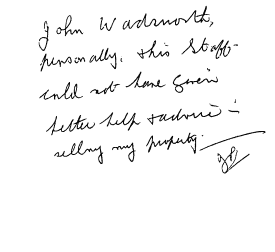 John Wadsworth,
personally. this staff
could not have given
better help & advice –
selling my property.